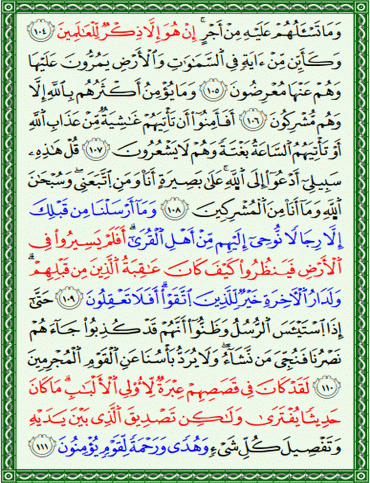 وَمَا تَسْـَٔلُهُمْ عَلَيْهِ مِنْ أَجْرٍ ۚ إِنْ هُوَ إِلَّا ذِكْرٌ لِّلْعَٰلَمِينَ ١٠٤
وَكَأَيِّن مِّنْ ءَايَةٍ فِى ٱلسَّمَٰوَٰتِ وَٱلْأَرْضِ يَمُرُّونَ عَلَيْهَا
وَهُمْ عَنْهَا مُعْرِضُونَ ١٠٥ وَمَا يُؤْمِنُ أَكْثَرُهُم بِٱللَّهِ إِلَّا
وَهُم مُّشْرِكُونَ ١٠٦ أَفَأَمِنُوٓا۟ أَن تَأْتِيَهُمْ غَٰشِيَةٌ مِّنْ عَذَابِ ٱللَّهِ
أَوْ تَأْتِيَهُمُ ٱلسَّاعَةُ بَغْتَةً وَهُمْ لَا يَشْعُرُونَ ١٠٧ قُلْ هَٰذِهِۦ
سَبِيلِىٓ أَدْعُوٓا۟ إِلَى ٱللَّهِ ۚ عَلَىٰ بَصِيرَةٍ أَنَا۠ وَمَنِ ٱتَّبَعَنِى ۖ وَسُبْحَٰنَ
ٱللَّهِ وَمَآ أَنَا۠ مِنَ ٱلْمُشْرِكِينَ ١٠٨ وَمَآ أَرْسَلْنَا مِن قَبْلِكَ
إِلَّا رِجَالًا نُّوحِىٓ إِلَيْهِم مِّنْ أَهْلِ ٱلْقُرَىٰٓ ۗ أَفَلَمْ يَسِيرُوا۟ فِى
ٱلْأَرْضِ فَيَنظُرُوا۟ كَيْفَ كَانَ عَٰقِبَةُ ٱلَّذِينَ مِن قَبْلِهِمْ ۗ
وَلَدَارُ ٱلْءَاخِرَةِ خَيْرٌ لِّلَّذِينَ ٱتَّقَوْا۟ ۗ أَفَلَا تَعْقِلُونَ ١٠٩ حَتَّىٰٓ
إِذَا ٱسْتَيْـَٔسَ ٱلرُّسُلُ وَظَنُّوٓا۟ أَنَّهُمْ قَدْ كُذِبُوا۟ جَآءَهُمْ
نَصْرُنَا فَنُجِّىَ مَن نَّشَآءُ ۖ وَلَا يُرَدُّ بَأْسُنَا عَنِ ٱلْقَوْمِ ٱلْمُجْرِمِينَ
١١٠ لَقَدْ كَانَ فِى قَصَصِهِمْ عِبْرَةٌ لِّأُو۟لِى ٱلْأَلْبَٰبِ ۗ مَا كَانَ
حَدِيثًا يُفْتَرَىٰ وَلَٰكِن تَصْدِيقَ ٱلَّذِى بَيْنَ يَدَيْهِ
وَتَفْصِيلَ كُلِّ شَىْءٍ وَهُدًى وَرَحْمَةً لِّقَوْمٍ يُؤْمِنُونَ ١١١